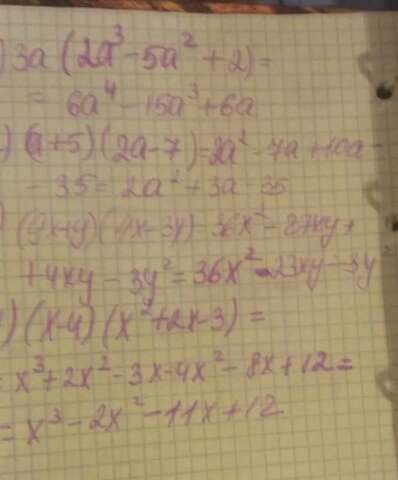 ) 3a (2a³ - 5a² + 2) =
= 6a⁴ - 15a³ + 6a
) (a+5)(2a-7) = 2a² - 7a + 10a -
- 35 = 2a² + 3a - 35
) (9x+y)(4x-3y) 36x² - 27xy +
+ 4xy - 3y² = 36x² - 23xy - 3y²
) (x-4)(x²+2x-3) =
= x³ + 2x² - 3x - 4x² - 8x + 12 =
= x³ - 2x² - 11x + 12